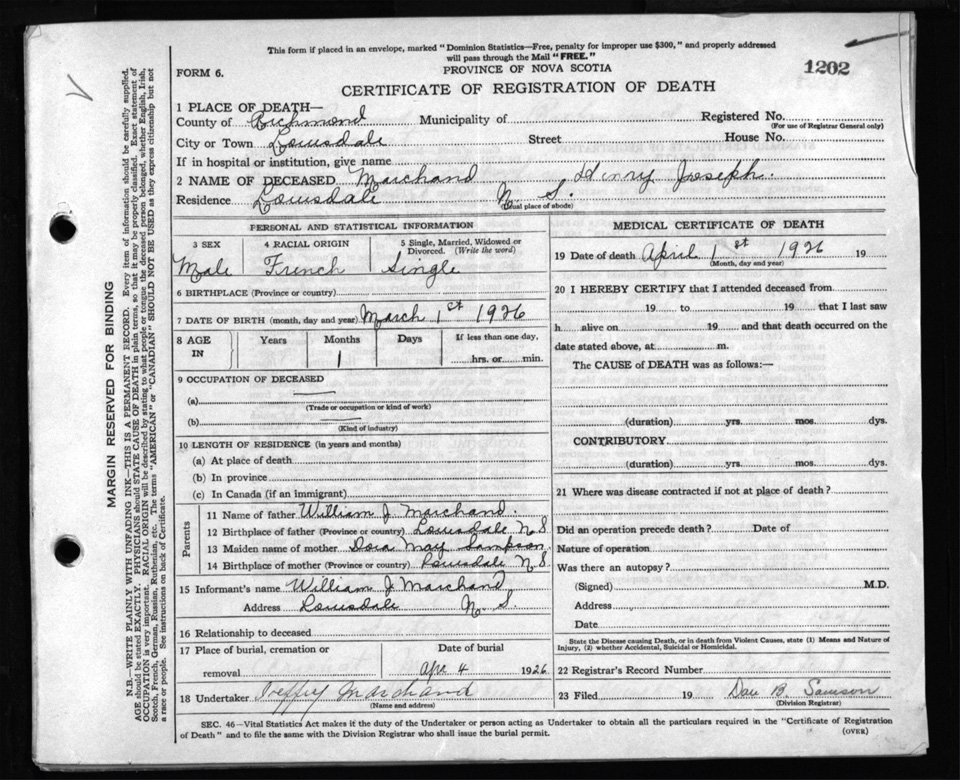 This form if placed in an envelope, marked "Dominion Statistics—Free, penalty for improper use $300," and properly addressed
will pass through the Mail "FREE."
FORM 6.
PROVINCE OF NOVA SCOTIA
1202
CERTIFICATE OF REGISTRATION OF DEATH
MARGIN RESERVED FOR BINDING
N.B.—WRITE PLAINLY WITH UNFADING INK—THIS IS A PERMANENT RECORD. Every item of information should be carefully supplied.
AGE should be stated EXACTLY. PHYSICIANS should STATE CAUSE OF DEATH in plain terms, so that it may be properly classified. Exact statement of
OCCUPATION is very important. RACIAL ORIGIN will be described by stating to what people or tongue the deceased person belonged, whether English, Irish,
Scotch, French, German, Russian, Ruthenian, etc. The terms "AMERICAN" or "CANADIAN" SHOULD NOT BE USED as they express citizenship but not
a race or people. See instructions on back of Certificate.
1 PLACE OF DEATH—
County of Richmond Municipality of Registered No.
(For use of Registrar General only)
City or Town Louisdale Street House No.
If in hospital or institution, give name
2 NAME OF DECEASED Marchand Henry Joseph
Residence Louisdale N. S.
(Usual place of abode)
PERSONAL AND STATISTICAL INFORMATION
3 SEX
Male
4 RACIAL ORIGIN
French
5 Single, Married, Widowed or
Divorced. (Write the word)
Single
6 BIRTHPLACE (Province or country)
7 DATE OF BIRTH (month, day and year) March 1st 1926
8 AGE
IN
Years Months Days If less than one day,
1 hrs. or min.
9 OCCUPATION OF DECEASED
(a)
(Trade or occupation or kind of work)
(b)
(Kind of industry)
10 LENGTH OF RESIDENCE (in years and months)
(a) At place of death
(b) In province
(c) In Canada (if an immigrant)
Parents
11 Name of father William J. Marchand.
12 Birthplace of father (Province or country) Louisdale N S
13 Maiden name of mother Dora May Sampson
14 Birthplace of mother (Province or country) Louisdale N S
15 Informant's name William J Marchand
Address Louisdale N. S.
16 Relationship to deceased
17 Place of burial, cremation or Date of burial
removal Apr 4 1926
18 Undertaker Marchand
(Name and address)
MEDICAL CERTIFICATE OF DEATH
19 Date of death April 1st 1926 19
(Month, day and year)
20 I HEREBY CERTIFY that I attended deceased from
19 to 19 that I last saw
h alive on 19 and that death occurred on the
date stated above, at m.
The CAUSE of DEATH was as follows:—
(duration) yrs. mos. dys.
CONTRIBUTORY
(duration) yrs. mos. dys.
21 Where was disease contracted if not at place of death?
Did an operation precede death? Date of
Nature of operation
Was there an autopsy?
(Signed) M.D.
Address
Date
State the Disease causing Death, or in death from Violent Causes, state (1) Means and Nature of
Injury, (2) whether Accidental, Suicidal or Homicidal.
22 Registrar's Record Number
23 Filed 19 Dan B. Samson
(Division Registrar)
SEC. 46—Vital Statistics Act makes it the duty of the Undertaker or person acting as Undertaker to obtain all the particulars required in the "Certificate of Registration
of Death" and to file the same with the Division Registrar who shall issue the burial permit.
(OVER)